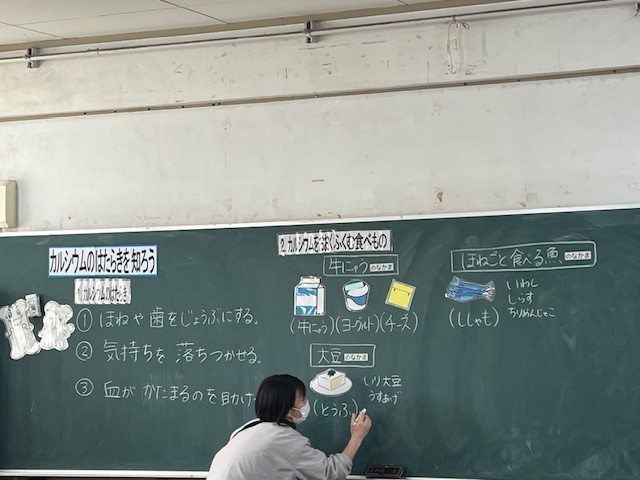 カルシウムのはたらきを知ろう
カルシウムのはたらき
① ほねや歯をじょうぶにする。
② 気持ちを落ちつかせる。
③ 血がかたまるのを助け
2.カルシウムを多くふくむ食べもの
牛にゅうのなかま
(牛にゅう)(ヨーグルト)(チーズ)
大豆のなかま
いり大豆
うすあげ
(とうふ)
ほねごと食べる魚のなかま
いわし
しらす
ちりめんじゃこ
(ししゃも)